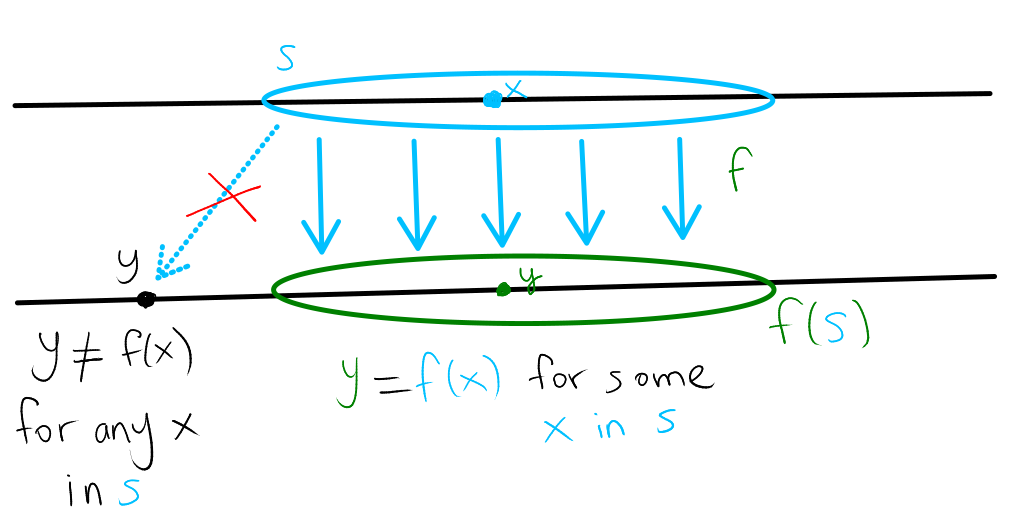 S
x
f
y
y
f(S)
y ≠ f(x)
for any x
in S
y = f(x) for some
x in S